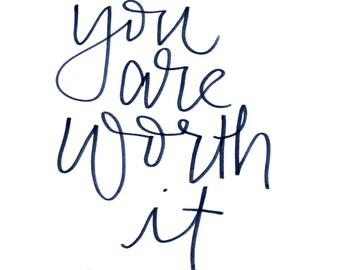 you
are
worth
it